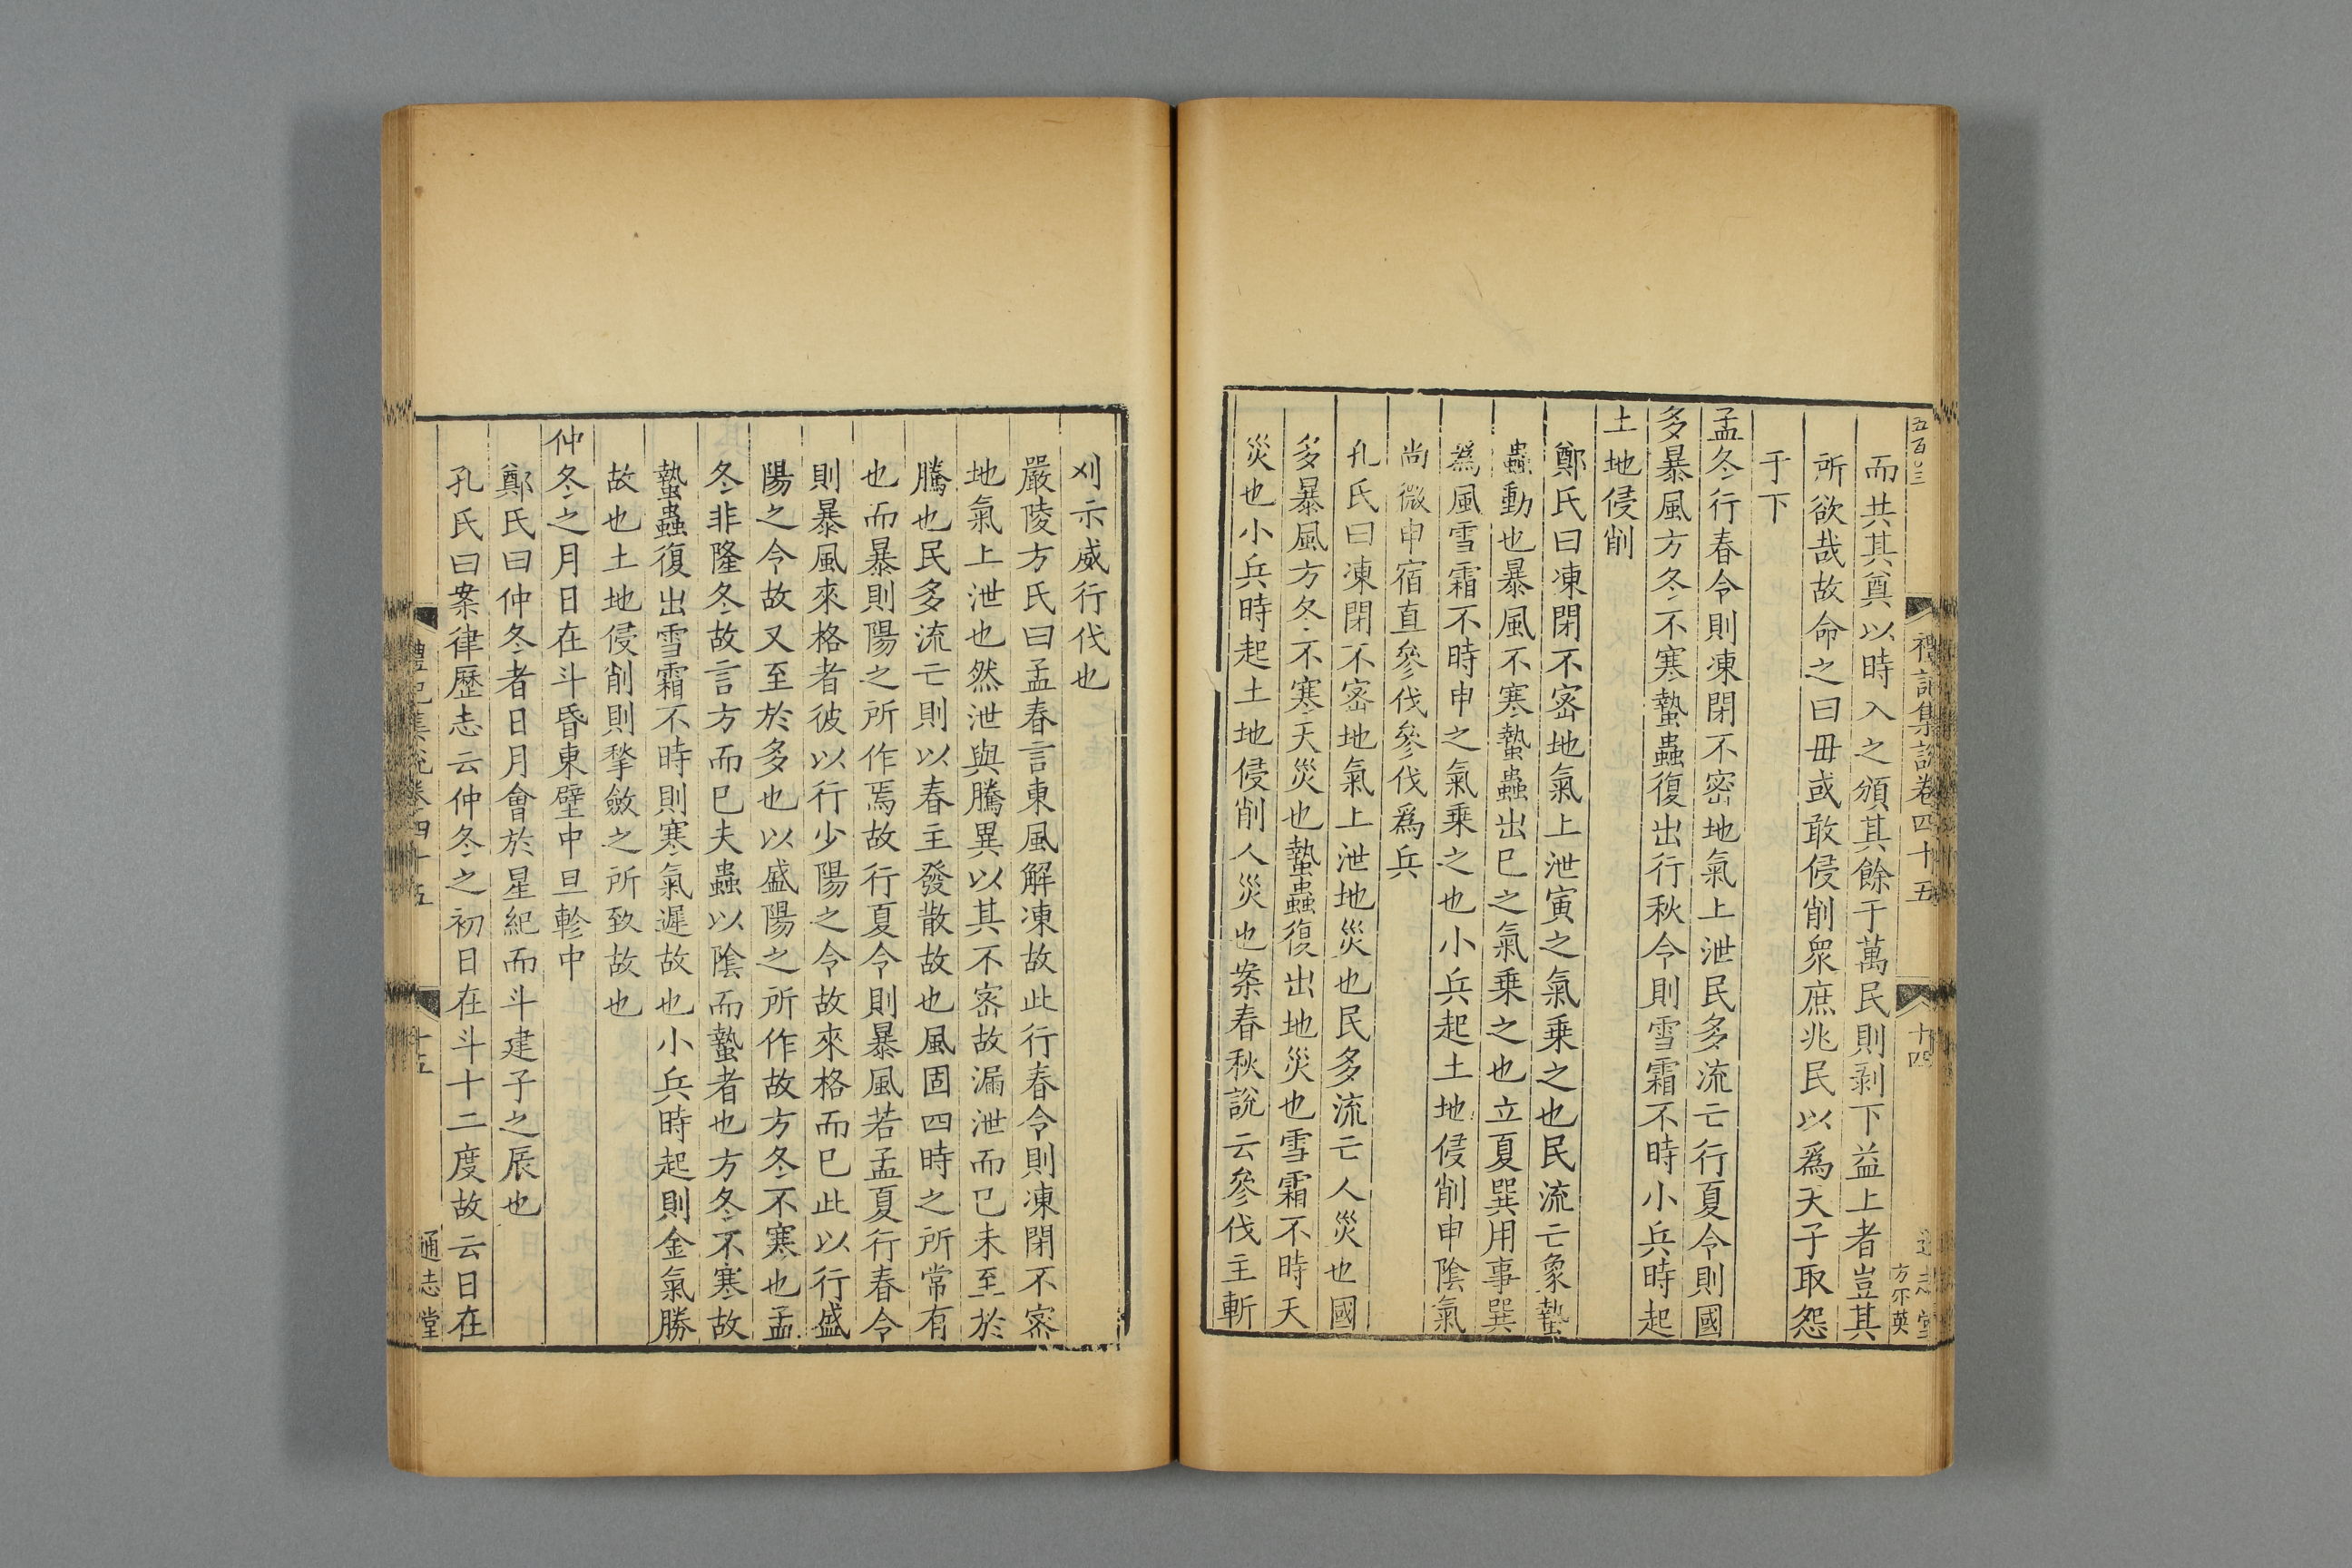 五百三
禮記集說卷四十五
十四
通志堂
方不英
而共其奠以時入之頒其餘于萬民則剥下益上者豈其
所欲哉故命之曰毋或敢侵削衆庶兆民以爲天子取怨
于下
孟冬行春令則凍閉不密地氣上泄民多流亡行夏令則國
多暴風方冬不寒蟄蟲復出行秋令則雪霜不時小兵時起
土地侵削
鄭氏曰凍閉不宻地氣上泄寅之氣乗之也民流亡象蟄
蟲動也暴風不寒蟄蟲出巳之氣乗之也立夏巽用事巽
爲風雪霜不時申之氣乗之也小兵起土地侵削申隂氣
尚微申宿直參伐參伐爲兵
孔氏曰凍閉不宻地氣上泄地災也民多流亡人災也國
多暴風方冬不寒天災也蟄蟲復出地災也雪霜不時天
災也小兵時起土地侵削人災也案春秋說云參伐主斬
刈示威行伐也
嚴陵方氏曰孟春言東風解凍故此行春令則凍閉不宻
地氣上泄也然泄與騰異以其不宻故漏泄而已未至於
騰也民多流亡則以春主發散故也風固四時之所常有
也而暴則陽之所作焉故行夏令則暴風若孟夏行春令
則暴風來格者彼以行少陽之令故來格而巳此以行盛
陽之令故又至於多也以盛陽之所作故方冬不寒也孟
冬非隆冬故言方而巳夫蟲以隂而蟄者也方冬不寒故
蟄蟲復出雪霜不時則寒氣遲故也小兵時起則金氣勝
故也土地侵削則揫斂之所致故也
仲冬之月日在斗昏東壁中旦軫中
鄭氏曰仲冬者日月會於星紀而斗建子之辰也
孔氏曰案律歷志云仲冬之初日在斗十二度故云日在
禮記集說卷四十五
十五
通志堂